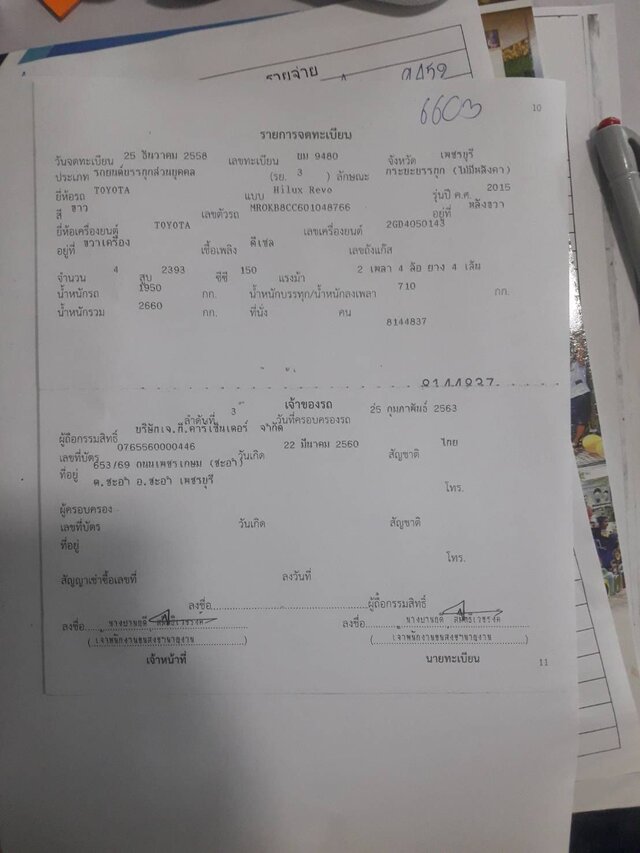 รายจ่าย
6603
10
รายการจดทะเบียน
วันจดทะเบียน 25 ธันวาคม 2558 เลขทะเบียน ยม 9480 จังหวัด เพชรบุรี
ประเภท รถยนต์บรรทุกส่วนบุคคล (รย. 3 ) ลักษณะ กระยะบรรทุก (ไม่มีหลังคา)
ยี่ห้อรถ TOYOTA แบบ Hilux Revo รุ่นปี ค.ศ. 2015
สี ขาว เลขตัวรถ MROKB8CC601048766 อยู่ที่ หลังขวา
ยี่ห้อเครื่องยนต์ TOYOTA เลขเครื่องยนต์ 2GD4050143
อยู่ที่ ขวาเครื่อง เชื้อเพลิง ดีเซล เลขถังแก๊ส
จำนวน 4 สูบ 2393 ซีซี 150 แรงม้า 2 เพลา 4 ล้อ ยาง 4 เส้น
น้ำหนักรถ 1950 กก. น้ำหนักบรรทุก/น้ำหนักลงเพลา 710 กก.
น้ำหนักรวม 2660 กก. ที่นั่ง คน
8144837
8144837
เจ้าของรถ
ลำดับที่ 3 วันที่ครอบครองรถ 25 กุมภาพันธ์ 2563
ผู้ถือกรรมสิทธิ์ บริษัทเจ.ที.คาร์เซ็นเตอร์ จำกัด
เลขที่บัตร 0765560000446 วันเกิด 22 มีนาคม 2560 สัญชาติ ไทย
ที่อยู่ 653/69 ถนนเพชรเกษม (ชะอำ)
ต.ชะอำ อ.ชะอำ เพชรบุรี โทร.
ผู้ครอบครอง
เลขที่บัตร วันเกิด สัญชาติ
ที่อยู่
โทร.
สัญญาเช่าซื้อเลขที่ ลงวันที่
ลงชื่อ ผู้ถือกรรมสิทธิ์
ลงชื่อ ลงชื่อ
(เจ้าพนักงานขนส่งชำนาญงาน) (เจ้าพนักงานขนส่งชำนาญงาน)
เจ้าหน้าที่ นายทะเบียน
11